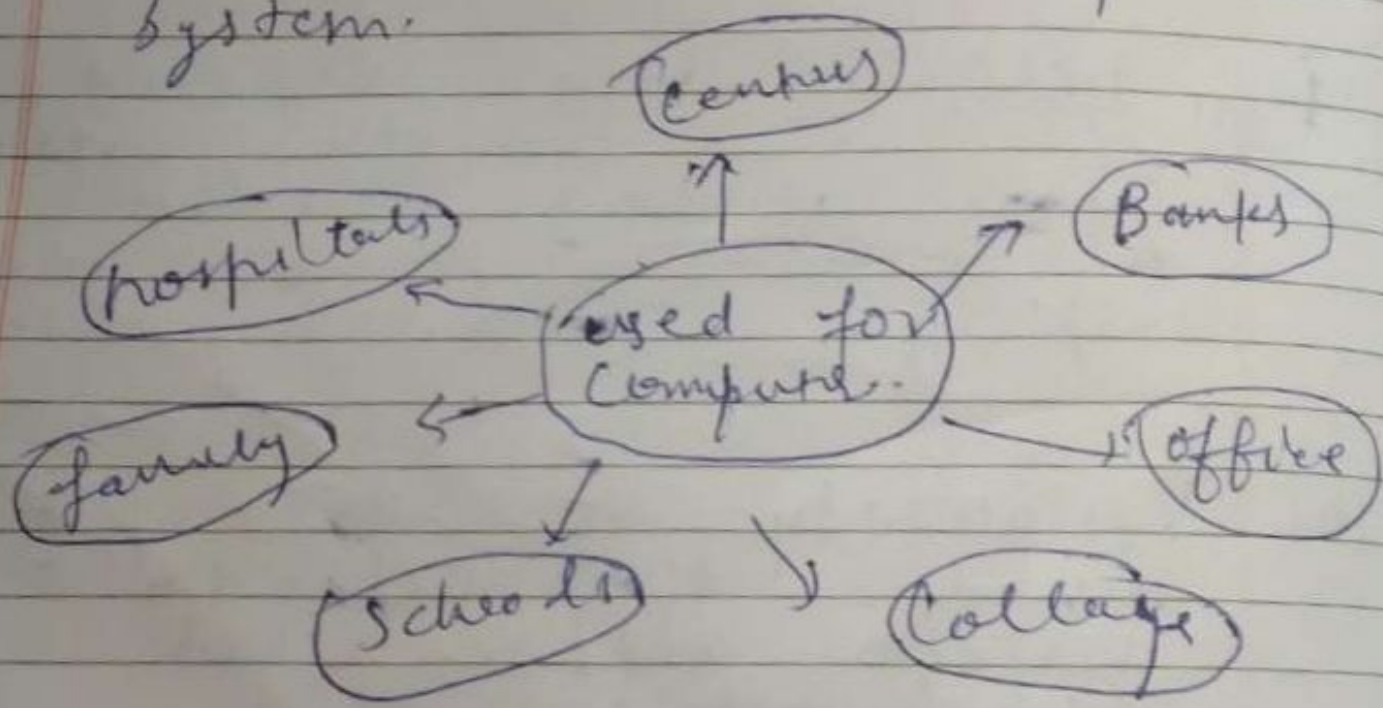 System.
Campus
hospitals
Banks
used for
Computer.
family
office
Schools
Collage